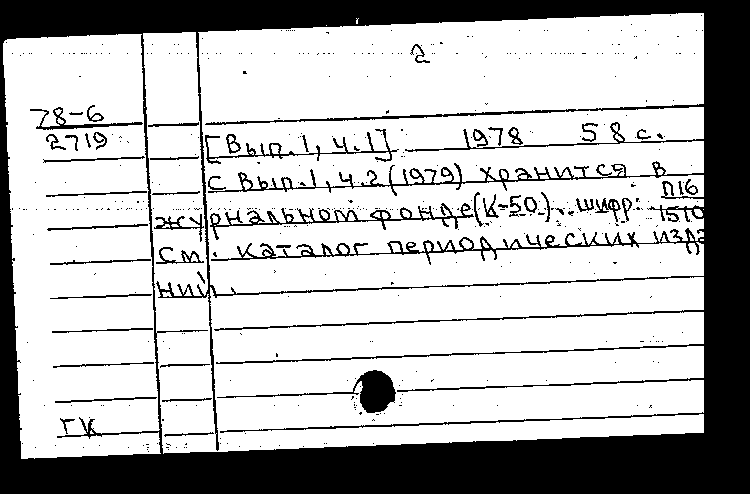 2
78-6
2719
[Вып.1, ч.1] 1978 58 с.
С Вып.1, ч.2 (1979) хранится в
журнальном фонде (К-50). шифр: П16
1510
См. каталог периодических изда
ний.
ГК